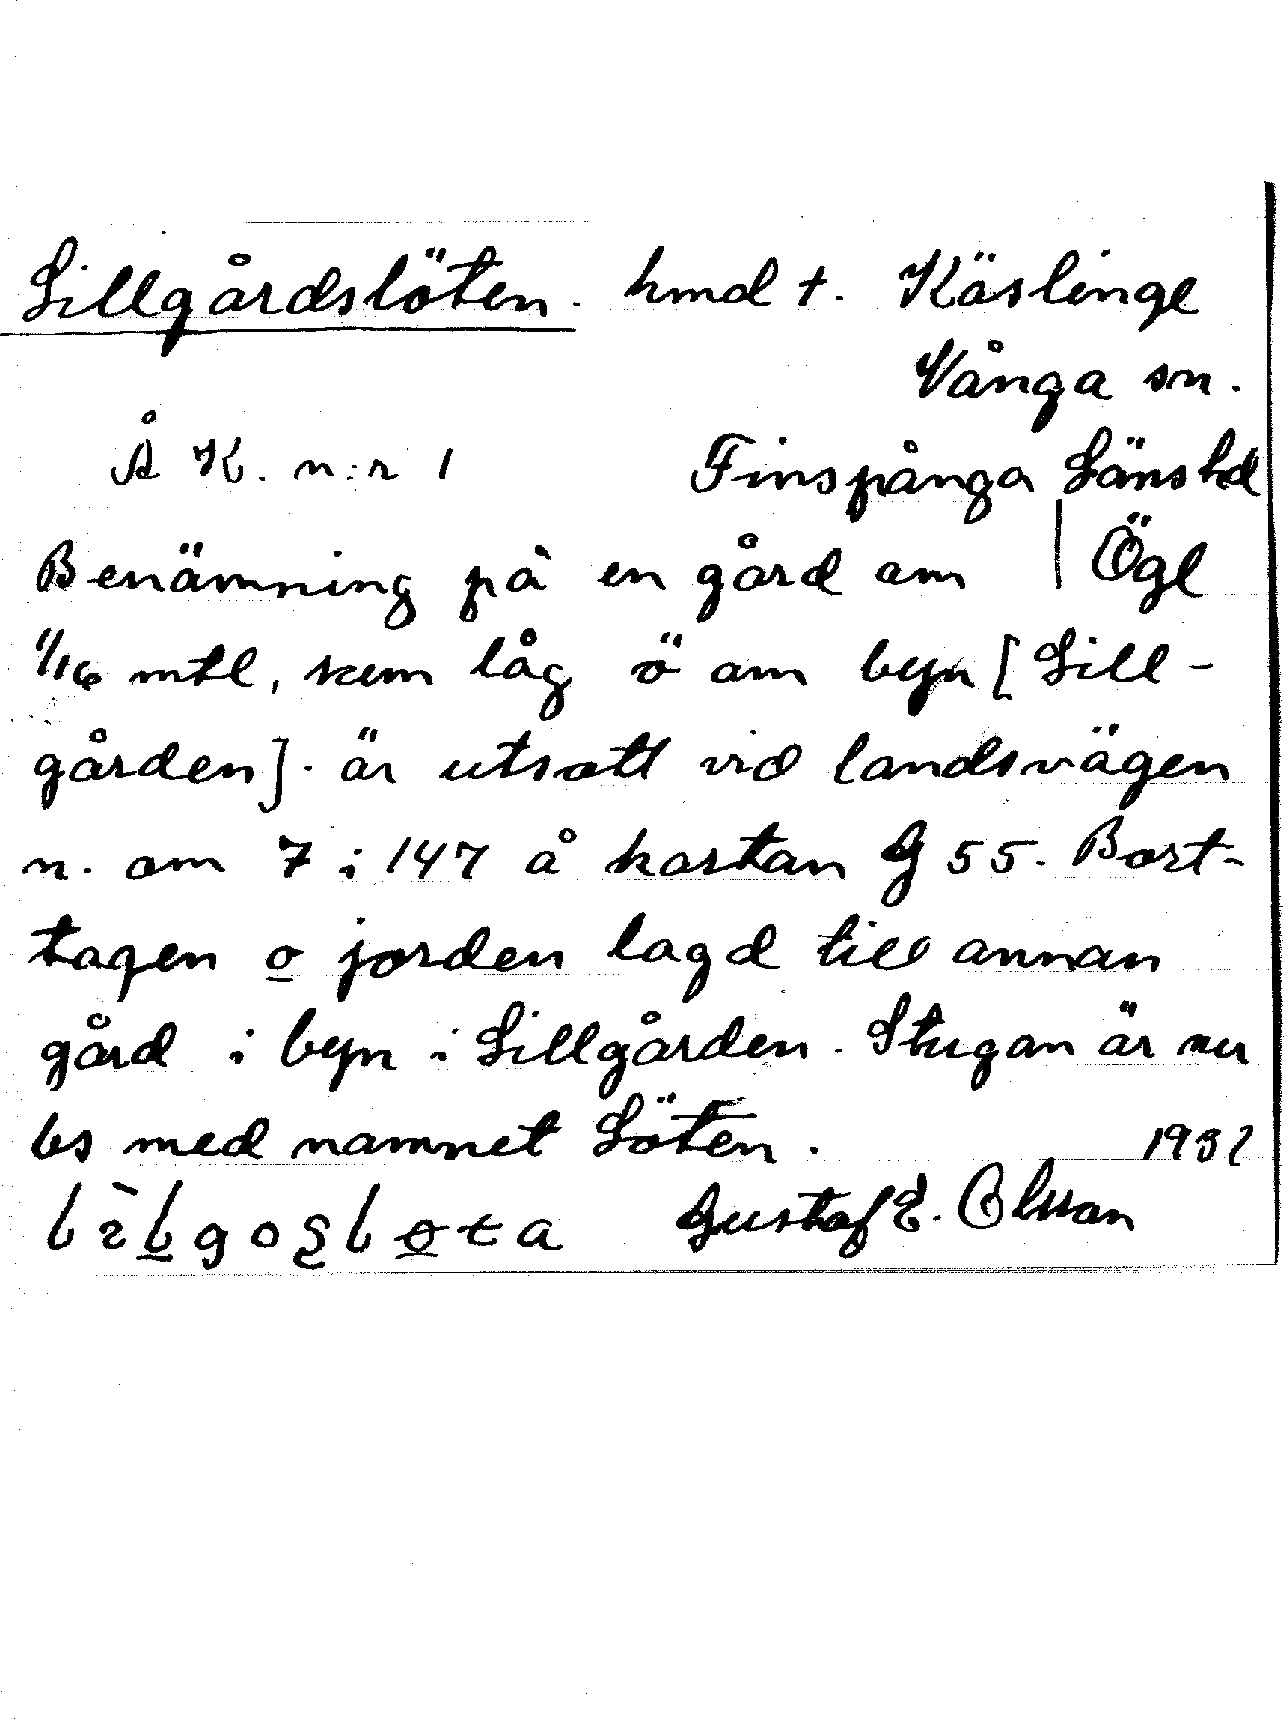 Lillgårdslöten. hmd t. Käslinge
Vånga sn.
Å K. n:r 1 Finspånga Länshd
Benämning på en gård om | Ögl
1/16 mtl, som låg ö om byn [Lill-
gården]. är utsatt vid landsvägen
n. om 7 i 147 å kartan G 55. Bort-
tagen o jorden lagd till annan
gård i byn i Lillgården. Stugan är nu
bs med namnet Löten. 1932
Gustaf E. Olsson